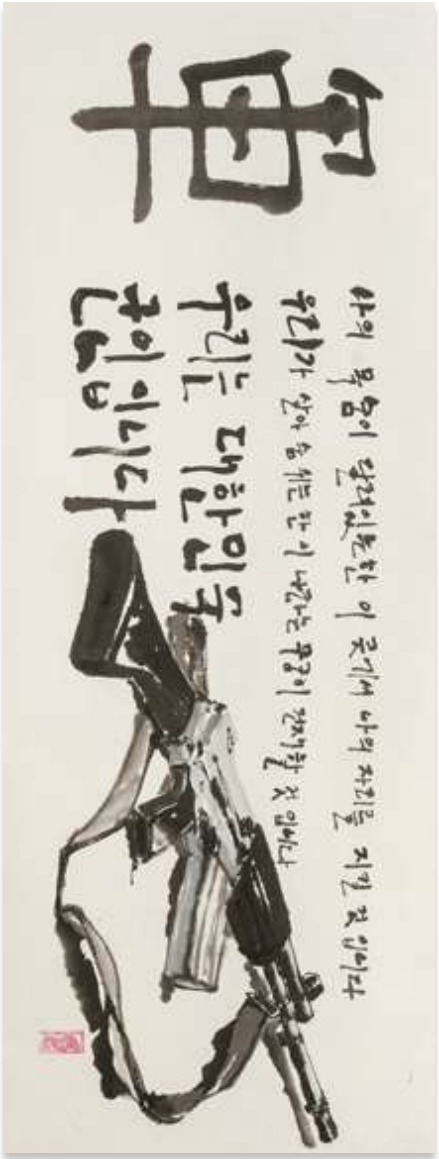 軍
나의 목숨이 달려있는한 이 곳에서 나의 자리를 지킬 것 입니다
우리가 살아 숨쉬는 한 이 나라는 무궁히 존재할 것 입니다
우리는 대한민국
군인입니다